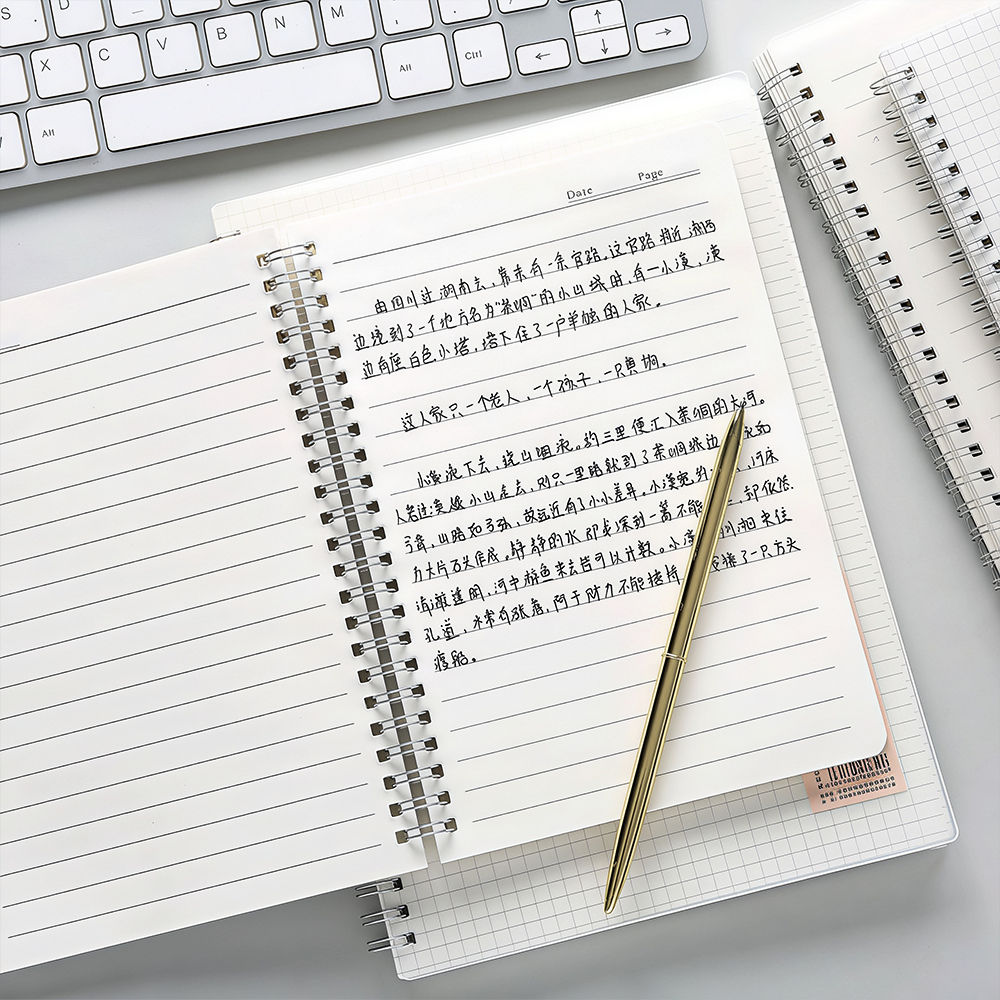 S D
X C V B N M
Alt Alt Ctrl ← ↑ ↓ →
Date Page
由四川过湖南去，靠东有一条官路，这官路将近湘西
边境到了一个地方名为“茶峒”的小山城时，有一小溪，溪
边有座白色小塔，塔下住了一户单独的人家。
这人家只一个老人，一个孩子，一只黄狗。
小溪流下去，绕山岨流。约三里便汇入茶峒的大河。
人若过溪越小山走去，则只一里路就到了茶峒城边
弓背，山路如弓弦，故远近有了小小差异。小溪宽约 河床
为大片石头作成。静静的水即或深到一篙不能 却依然
清澈透明，河中游鱼来去皆可以计数。小溪 川湘来往
孔道，水常有涨落，限于财力不能搭桥 安排了一只方头
渡船。